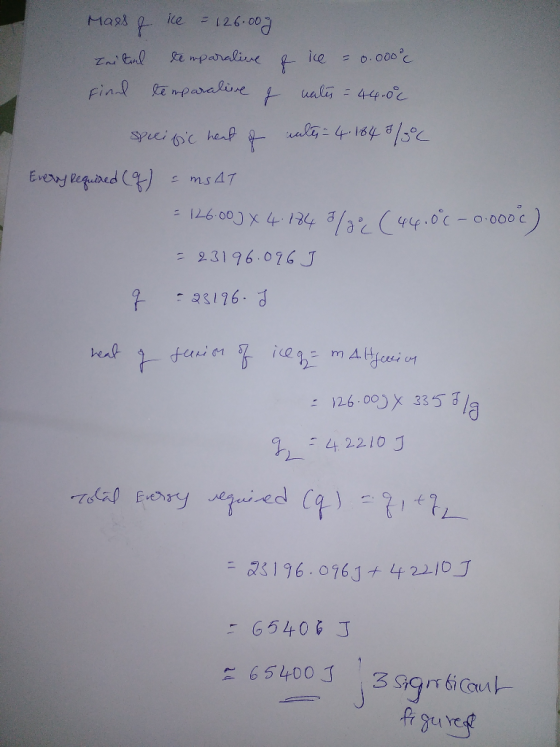 Mass of ice = 126.00g
Initial temparative of ice = 0.000°c
Final temparative of water = 44.0°c
specific heat of water = 4.184 J/g°c
Energy Required (q) = msΔT
= 126.00g x 4.184 J/g°c (44.0°c - 0.000°c)
= 23196.096 J
q = 23196. J
heat of fusion of ice q2 = mΔHfusion
= 126.00g x 335 J/g
q2 = 42210 J
Total Energy required (q) = q1 + q2
= 23196.096J + 42210J
= 65406 J
= 65400 J } 3 significant
figures